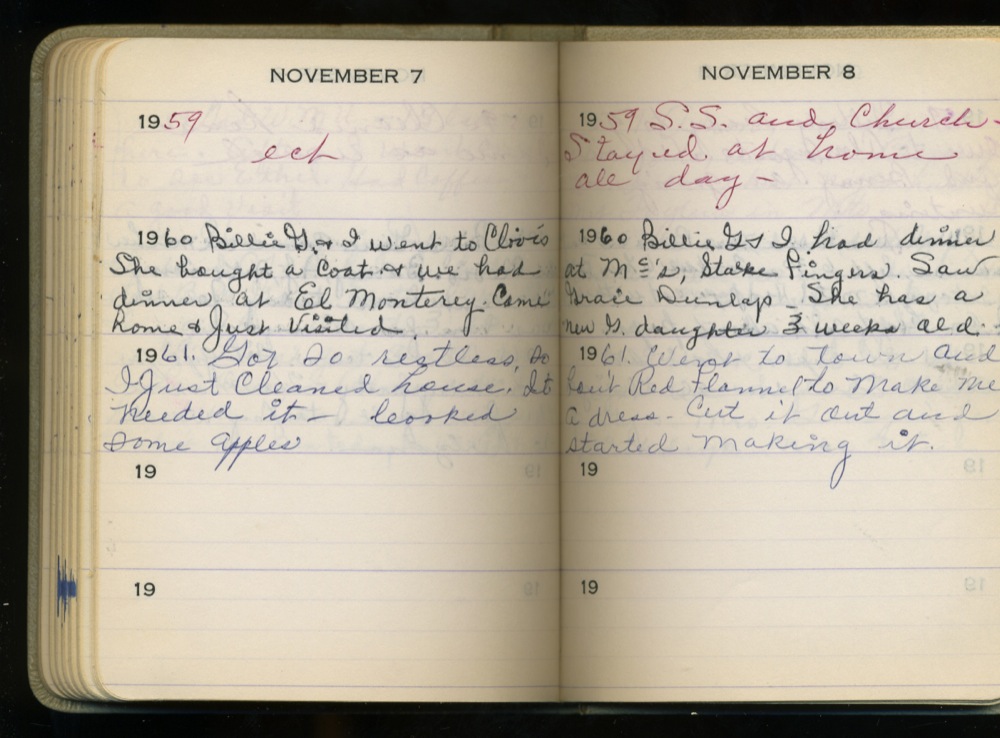 NOVEMBER 7
1959
ect
1960 Billie G. & I went to Clovis
She bought a Coat & we had
dinner at El Monterey. Came
home & Just Visited.
1961. Got so restless, so
I Just Cleaned house. It
needed it - cooked
some apples
19
19
NOVEMBER 8
1959 S.S. and Church -
Stayed at home
all day -
1960 Billie G & I had dinner
at Mc's, Stake Fingers. Saw
Gracie Dunlap - She has a
new G. daughter 3 weeks old.
1961. Went to town and
bout Red Flannel to Make me
a dress - Cut it out and
started making it.
19
19